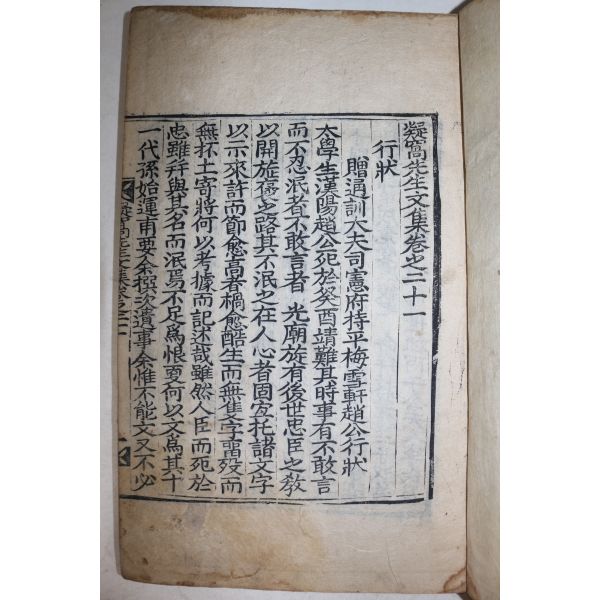 凝窩先生文集卷之二十一
行狀
贈通訓大夫司憲府持平梅雪軒趙公行狀
太學生漢陽趙公死於癸酉靖難其時事有不敢言
而不忍泯者不敢言者 光廟旋有後世忠臣之敎
以開旋褒之路其不泯之在人心者固宜托諸文字
以示來許而節愈高者禍愈酷生而無隻字留歿而
無抔土寄將何以考據而記述哉雖然人臣而死於
忠雖幷與其名而泯焉不足爲恨更何以文爲其十
一代孫始運甫要余撰次遺事余惟不能文又不必
凝窩先生文集卷之二十一